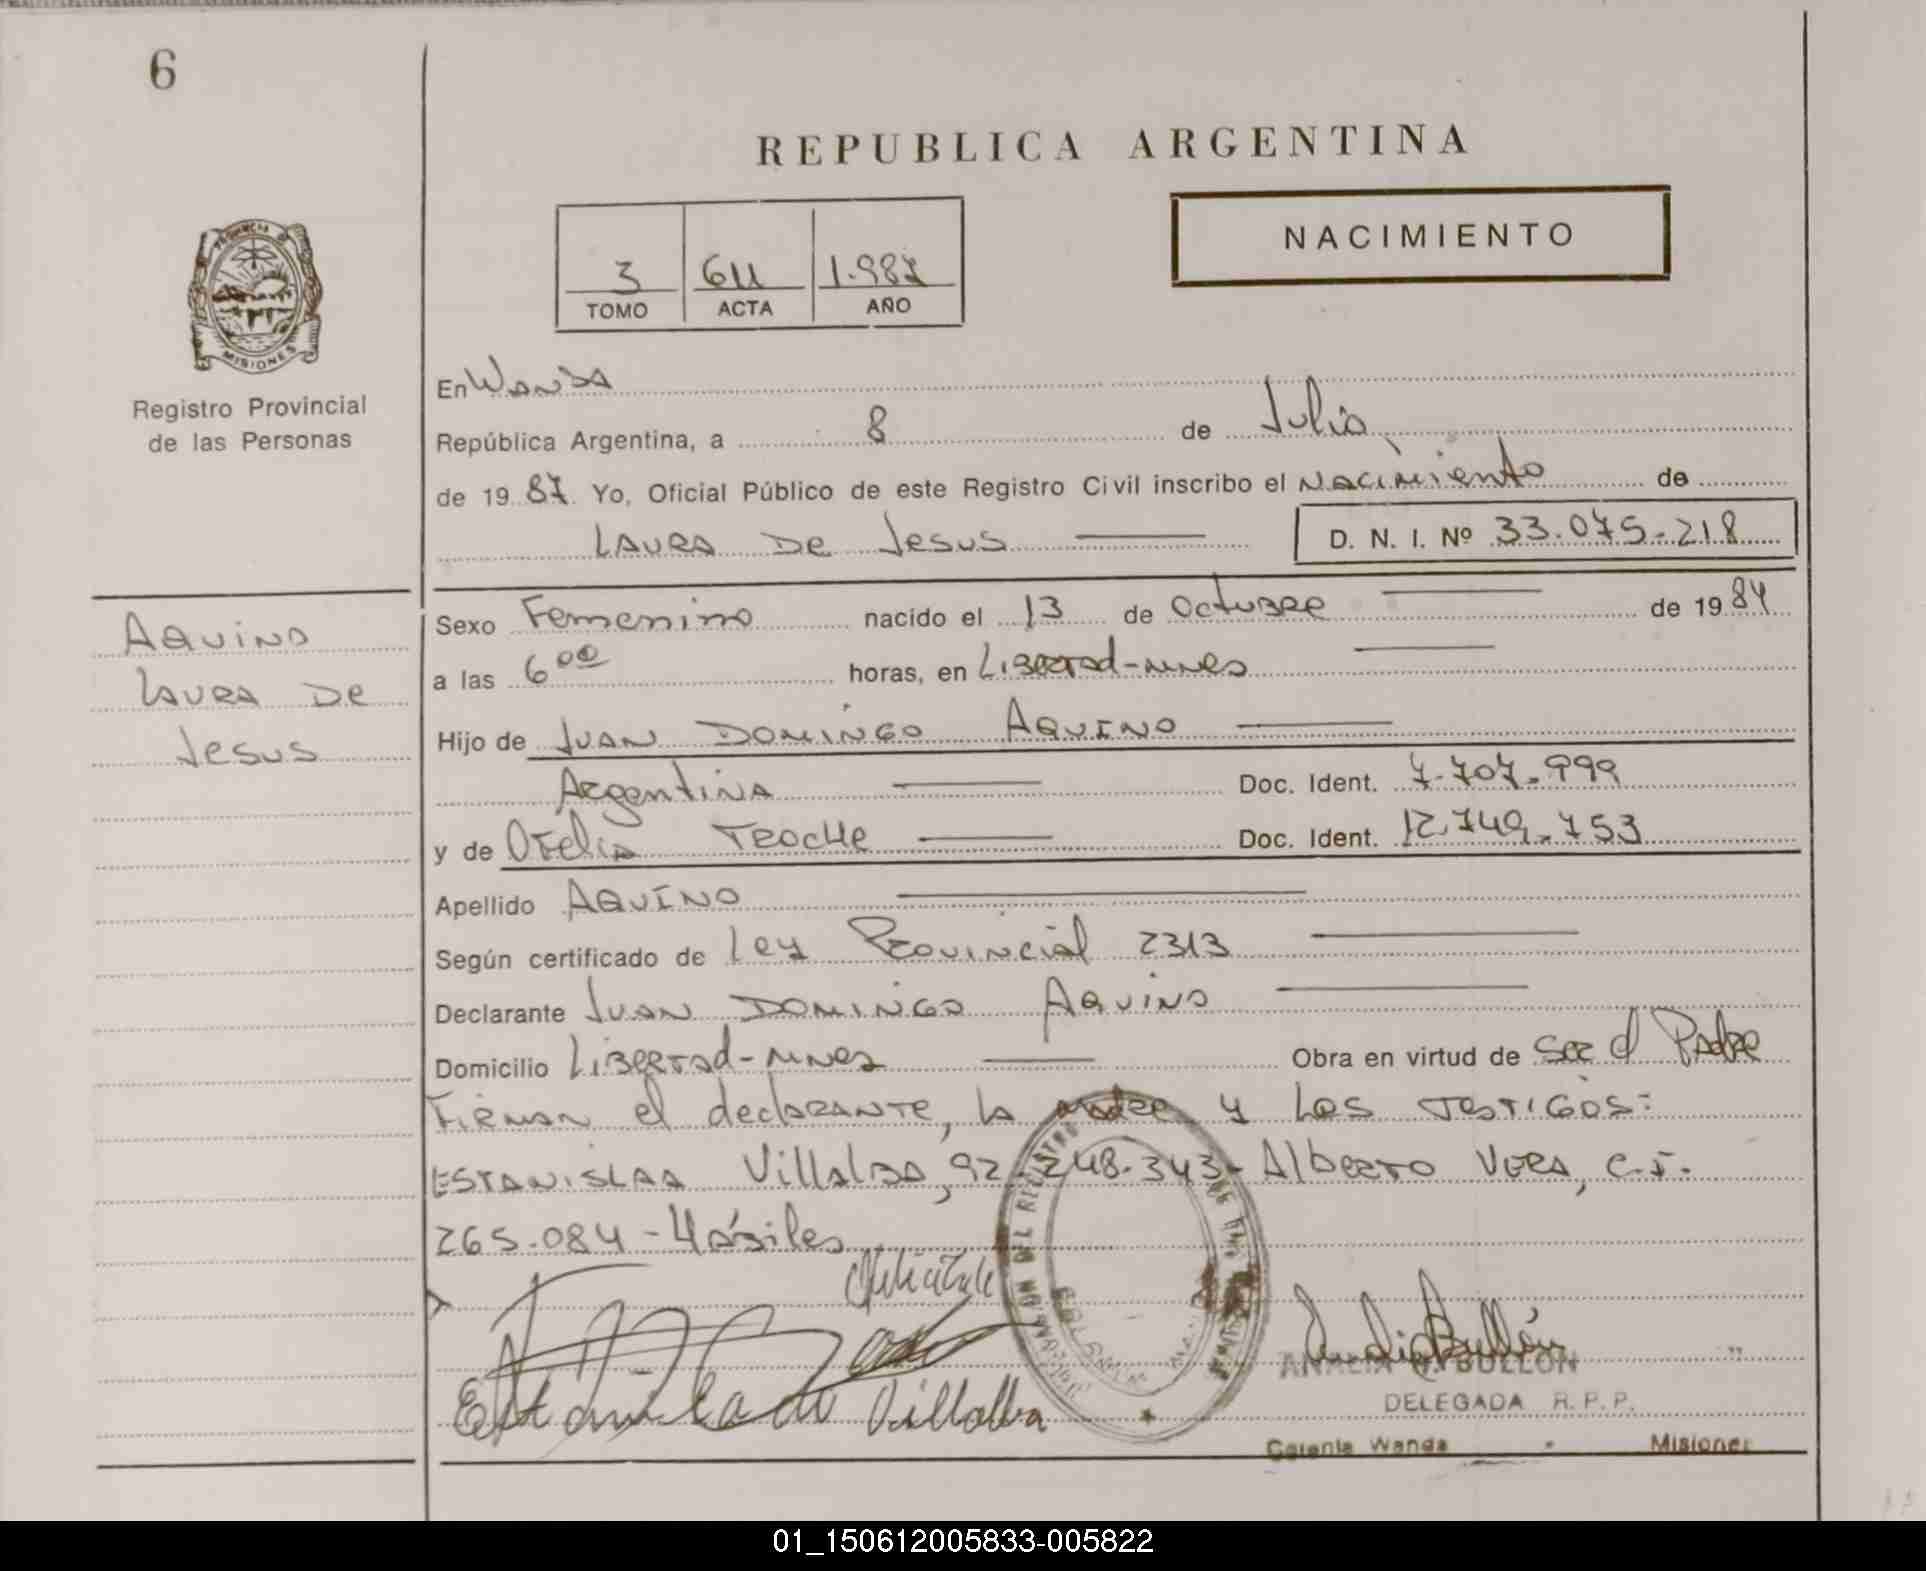 6
REPUBLICA ARGENTINA
NACIMIENTO
3 611 1.987
TOMO ACTA AÑO
PROVINCIA DE
MISIONES
Registro Provincial
de las Personas
En Wanda
República Argentina, a 8 de Julio
de 19 87 Yo, Oficial Público de este Registro Civil inscribo el Nacimiento de
LAURA De Jesus D. N. I. Nº 33.075.218
AQUINO
LAURA De
Jesus
Sexo Femenino nacido el 13 de Octubre de 19 84
a las 6 00 horas, en Libertad-mnes
Hijo de JUAN DOMINGO AQUINO
Argentina Doc. Ident. 7.707.999
y de Otelia TROCHE Doc. Ident. 12.749.753
Apellido AQUINO
Según certificado de Ley Provincial 2313
Declarante JUAN DOMINGO AQUINO
Domicilio Libertad-mnes Obra en virtud de Ser el Padre
Firman el declarante, la madre y Los Testigos:
ESTANISLAA Villalba, 92.248.343- Alberto VERA, C.I.
265.084 - Hábiles
Estanislada Villalba
ANALIA BULLON
DELEGADA R.P.P.
Colonia Wanda - Misiones
01_150612005833-005822